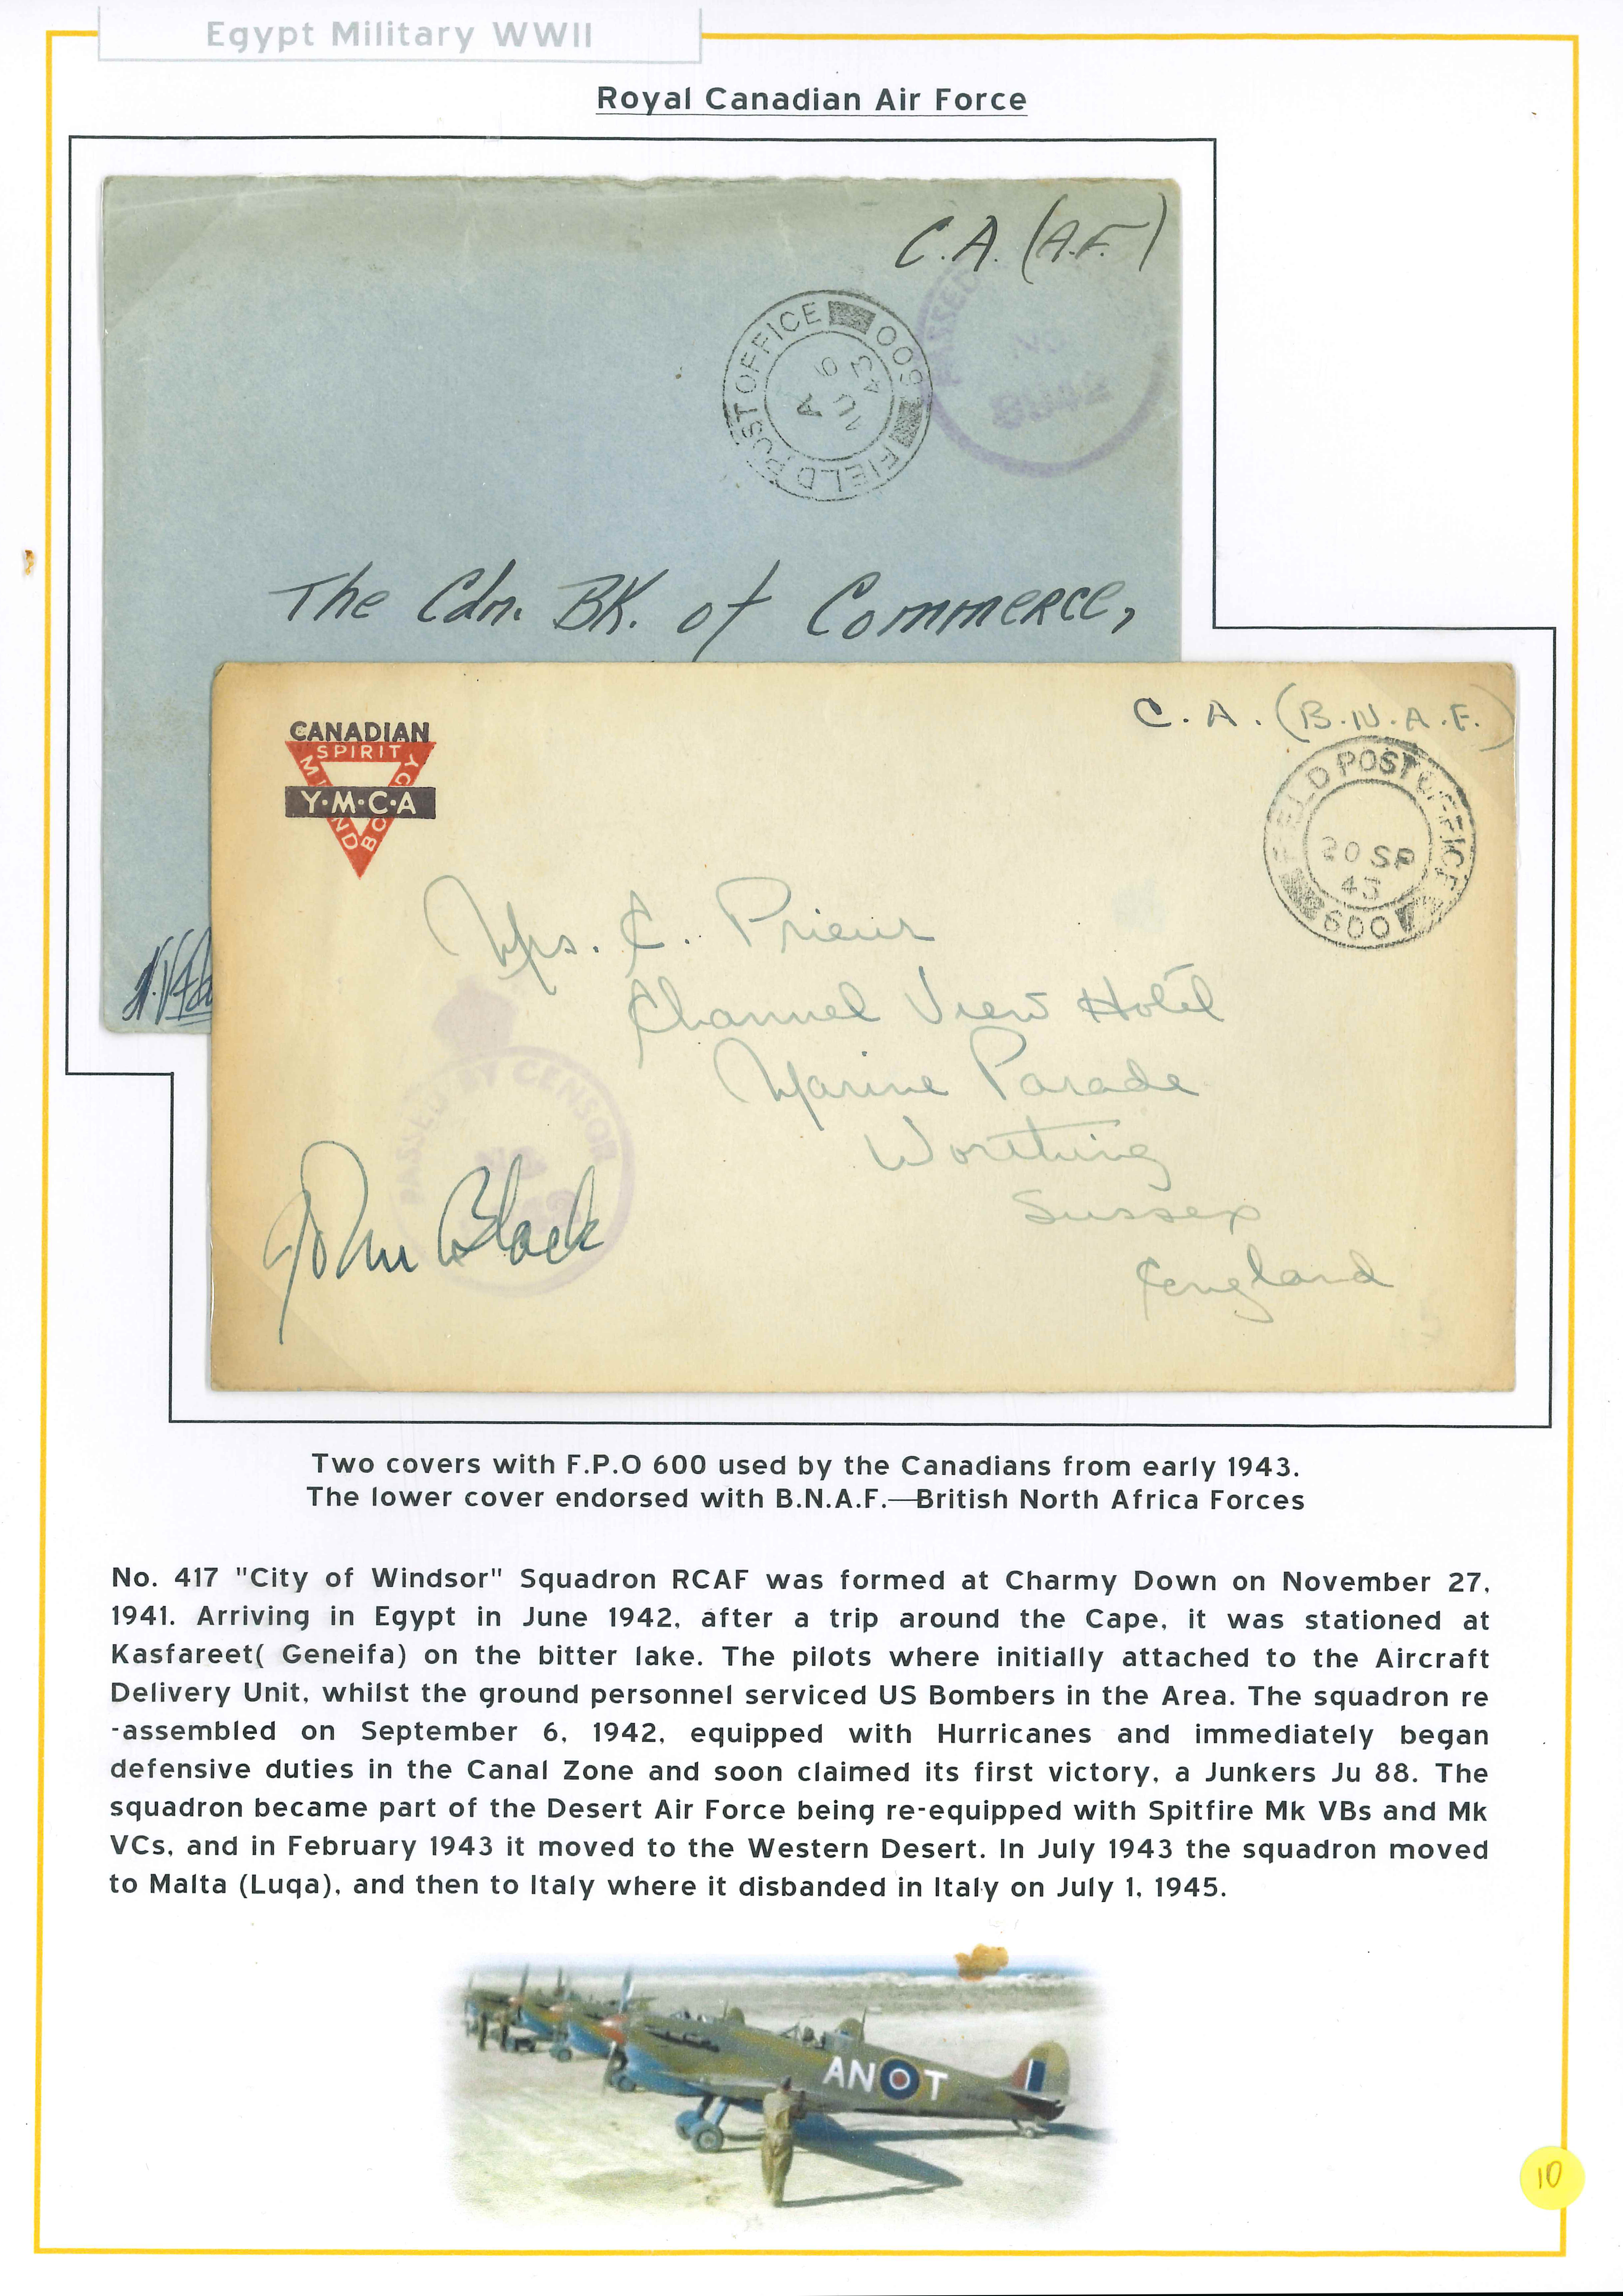 Egypt Military WWII
Royal Canadian Air Force
C.A. (A.F.)
FIELD POST OFFICE 600
A
AU 9
43
PASSED
No
The Cdn. BK. of Commerce,
C.A. (B.N.A.F.)
CANADIAN
SPIRIT
MIND BODY
Y·M·C·A
FIELD POST OFFICE
20 SP
43
600
Mrs. C. Prieur
Channel View Hotel
Marine Parade
Worthing
Sussex
England
PASSED BY CENSOR
No.
John Black
Two covers with F.P.O 600 used by the Canadians from early 1943.
The lower cover endorsed with B.N.A.F.—British North Africa Forces
No. 417 "City of Windsor" Squadron RCAF was formed at Charmy Down on November 27,
1941. Arriving in Egypt in June 1942, after a trip around the Cape, it was stationed at
Kasfareet( Geneifa) on the bitter lake. The pilots where initially attached to the Aircraft
Delivery Unit, whilst the ground personnel serviced US Bombers in the Area. The squadron re
-assembled on September 6, 1942, equipped with Hurricanes and immediately began
defensive duties in the Canal Zone and soon claimed its first victory, a Junkers Ju 88. The
squadron became part of the Desert Air Force being re-equipped with Spitfire Mk VBs and Mk
VCs, and in February 1943 it moved to the Western Desert. In July 1943 the squadron moved
to Malta (Luqa), and then to Italy where it disbanded in Italy on July 1, 1945.
AN T
10